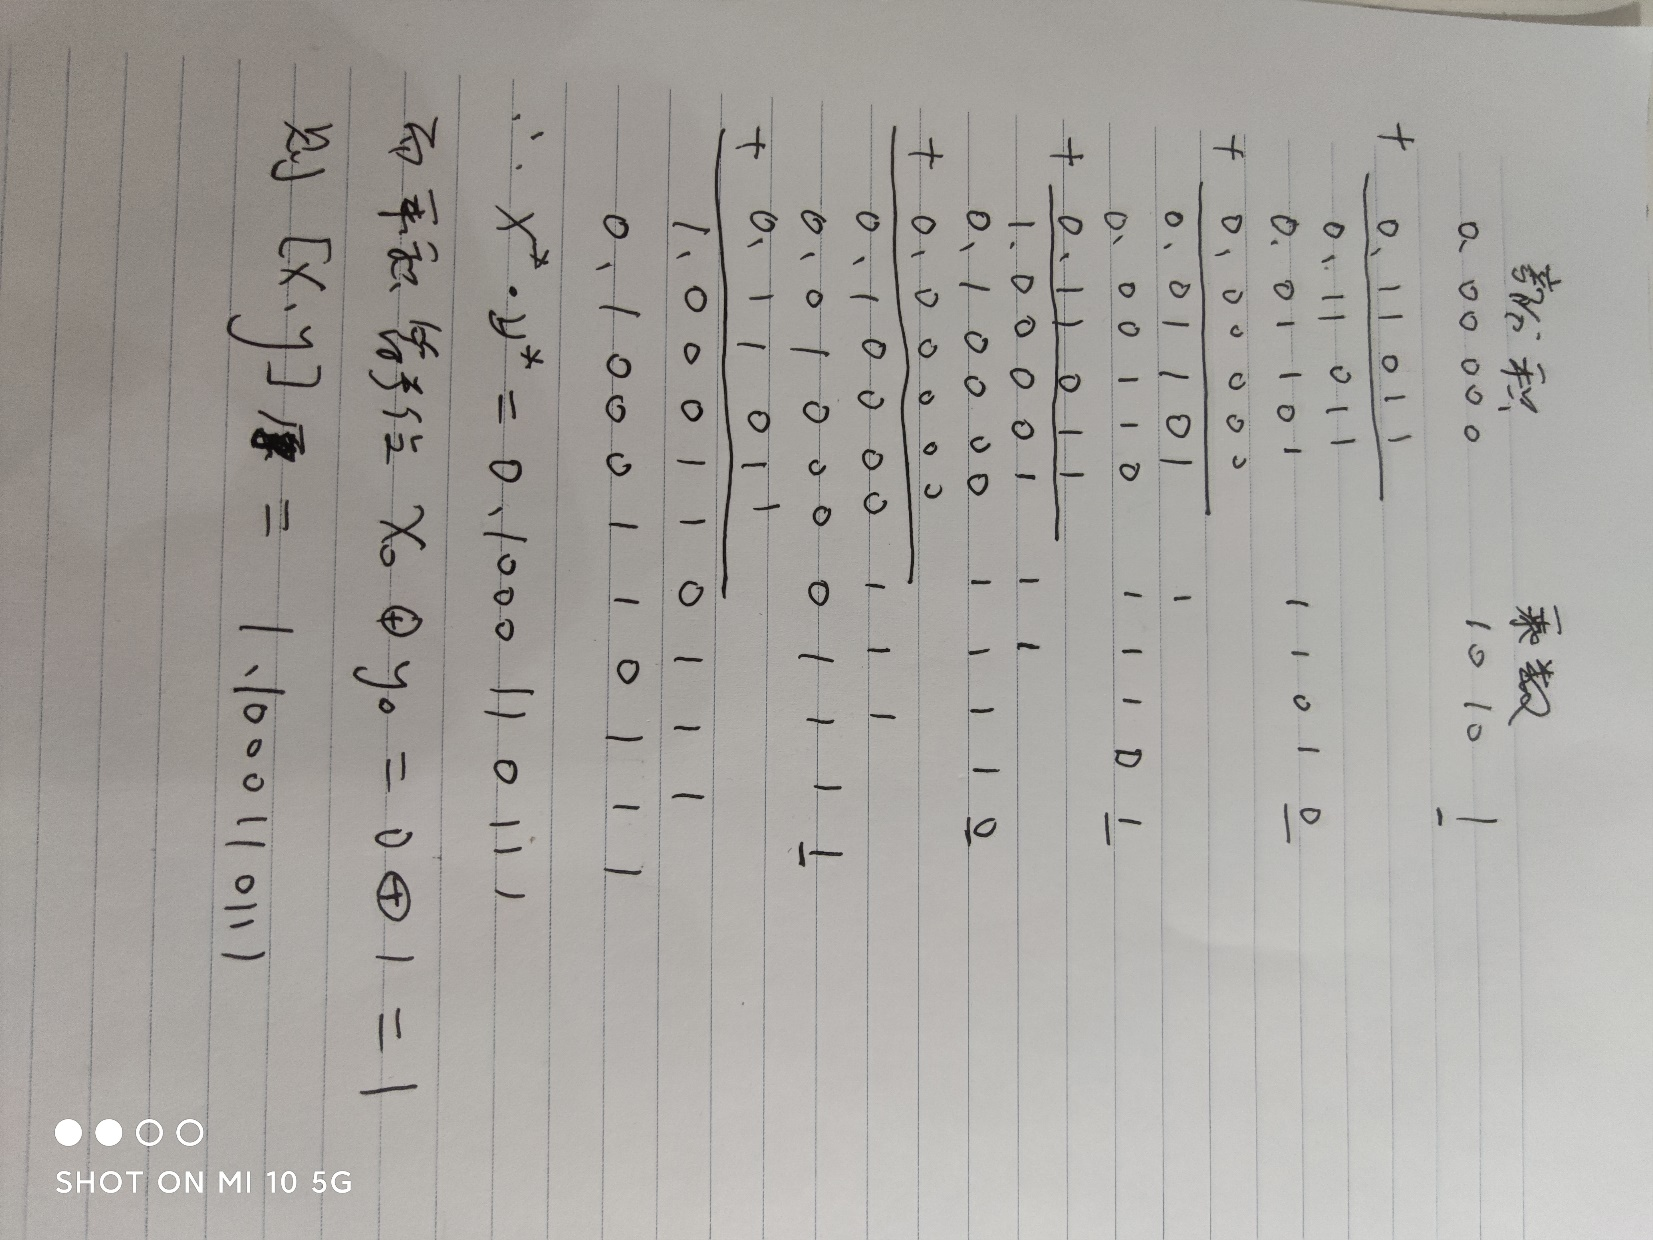 部分积 乘数
0.00000 10101
+ 0.11011
0.11011
0.01101 11010
+ 0.00000
0.01101 1
0.00110 11101
+ 0.11011
1.00001 11
0.10000 11110
+ 0.00000
0.10000 111
0.01000 01111
+ 0.11011
1.00011 0111
0.1000110111
∴ x*·y* = 0.1000110111
而乘积符号位 x₀⊕y₀ = 0⊕1 = 1
则 [x·y]原 = 1.1000110111
SHOT ON MI 10 5G